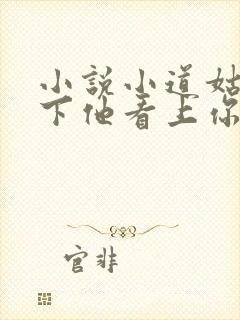 小説小道姑
下他看上你
官非